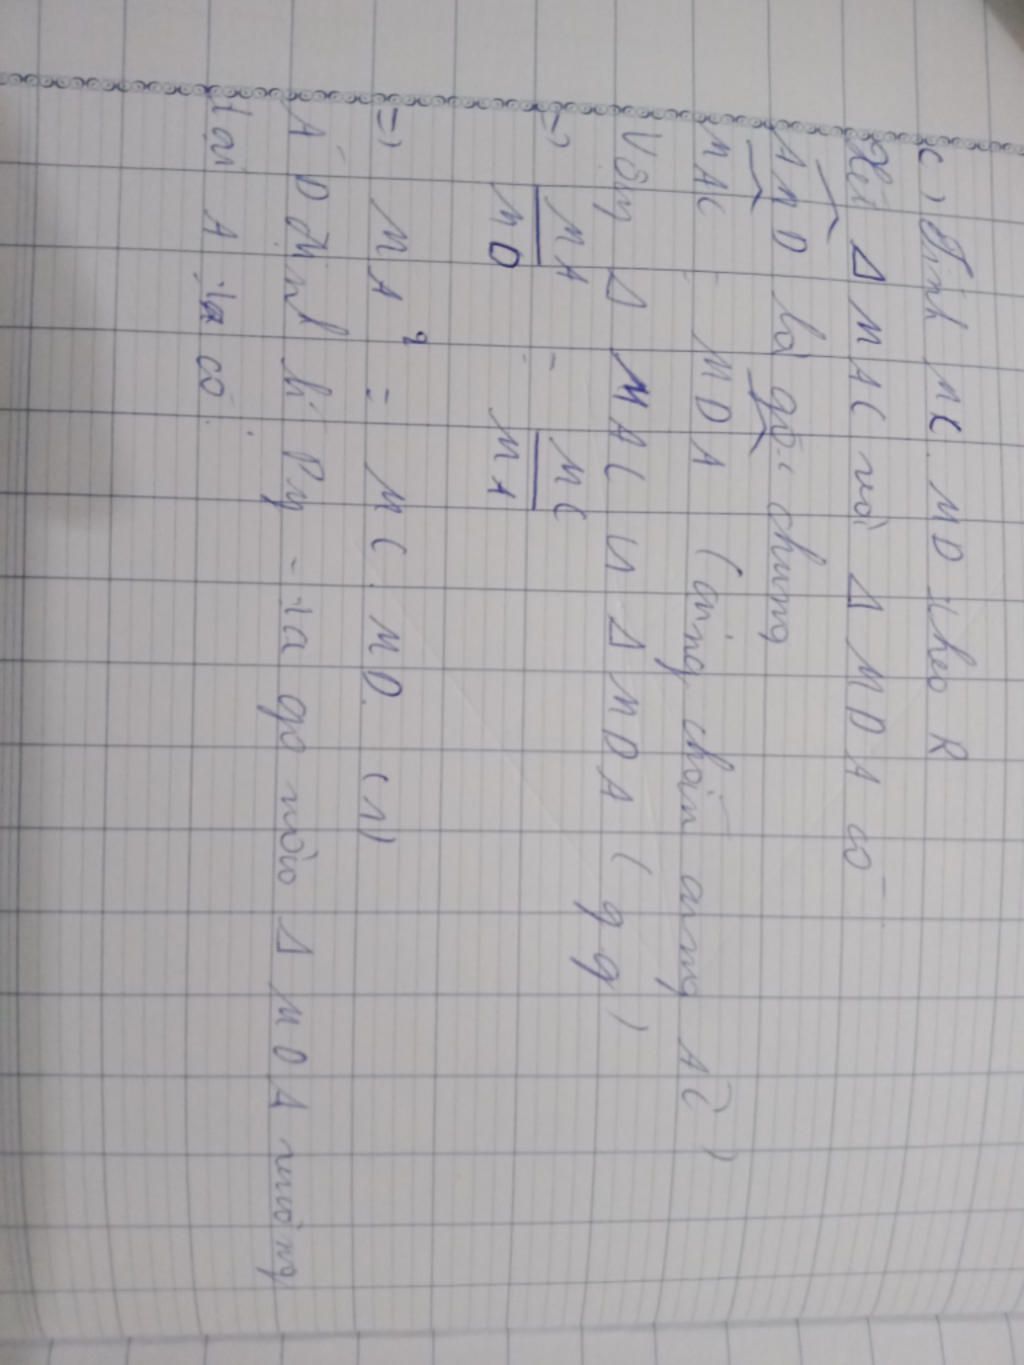 c) Tính MC. MD theo R
Xét Δ MAC và Δ MDA có
AMD là góc chung
MAC = MDA (cùng chắn cung AC)
Vậy Δ MAC ∽ Δ MDA (gg)
=> MA/MD = MC/MA
=> MA² = MC. MD. (1)
Á D định lí Py-ta go vào Δ MOA vuông
tại A ta có: